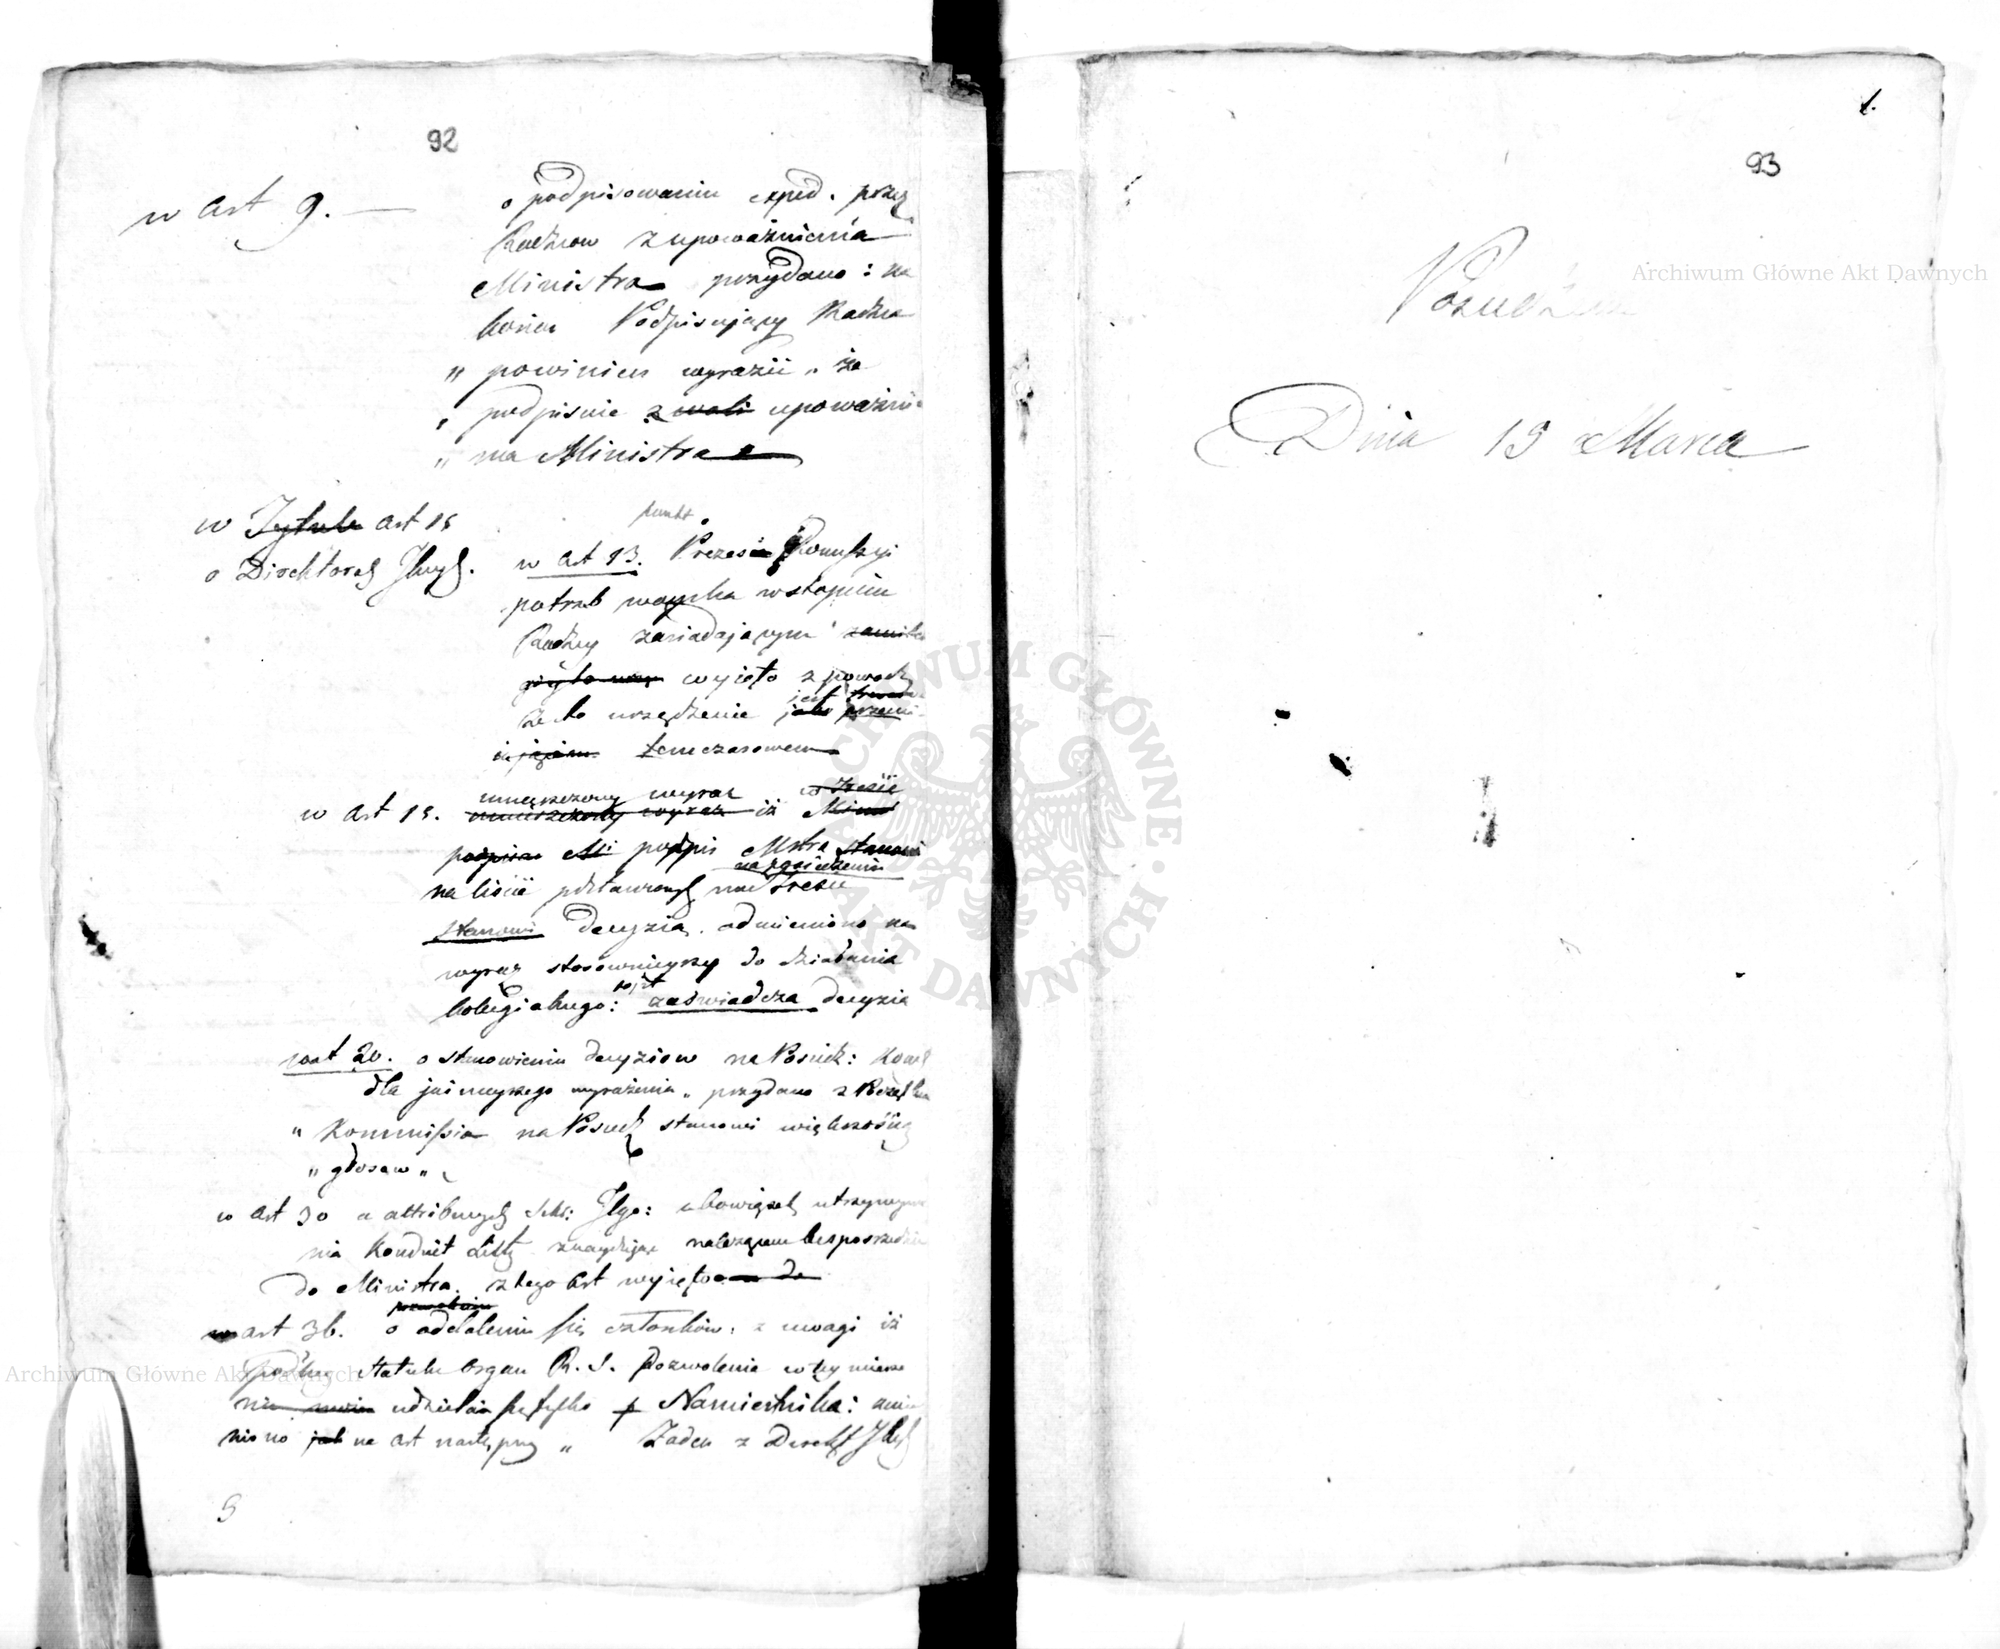 92
w Art 9. —
o podpisowaniu exped. przez
Radzcow z upoważnienia
Ministra przydano: na
końcu Podpisujący Radzca
„ powinien wyrazić „ że
„ podpisuie z woli upoważnie
„ nia Ministra
w Tytule art 15
o Direktorach Jlnych.
punkt
w Art 13. Prezesa Kommissyi
potrzeb woyska w stopniu
Radzcy zasiadaiącym
wyięto z powodu
że to urządzenie jest
temczasowem
w Art 15. umieszczony wyraz iż w treści
podpis Mstra
na zasiedzeniu
na liście przedstawionych nad treścią
stanowi decyzią. odmieniono na
wyraz stosownieyszy do działania
kollegialnego: zaświadcza decyzią
w art 20. o stanowieniu decyziow na Posiedz: Kom
dla jaśnieyszego wyrażenia „ przydano z Początku
„ Kommissia na Posiedz stanowi większością
„ głosow „
w Art 30 o attribucyach Sekr: Jlgo: obowiązek utrzymywa
nia Konduit Listy znayduiąc należącem bezposrzednio
do Ministra. z tego Art wyięto
w art 36. o oddaleniu się członków, z uwagi iż
podług Statutu Organ R. S. Pozwolenia w tey mierze
udziela się tylko p Namiestnika: odmie
niono na Art następny „ Żaden z Direkt Jlnych
5
1.
93
Posiedzenie
Dnia 15 Marca
Archiwum Główne Akt Dawnych
Archiwum Główne Akt Dawnych
ARCHIWUM GŁÓWNE AKT DAWNYCH